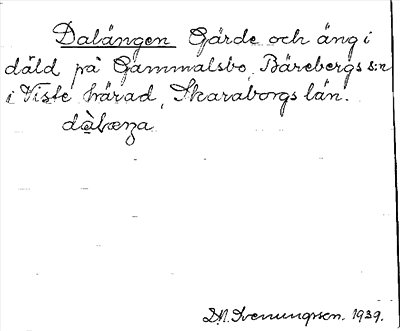 Dalängen Gärde och äng i
däld på Gammalsbo, Bärebergs s:n
i Viste härad, Skaraborgs län.
D.N. Svenungsson. 1939.